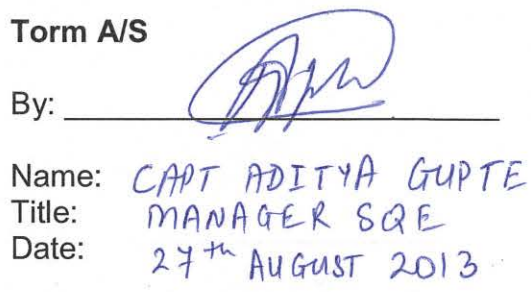 Torm A/S
By:
Name: CAPT ADITYA GUPTE
Title: MANAGER SQE
Date: 27th AUGUST 2013